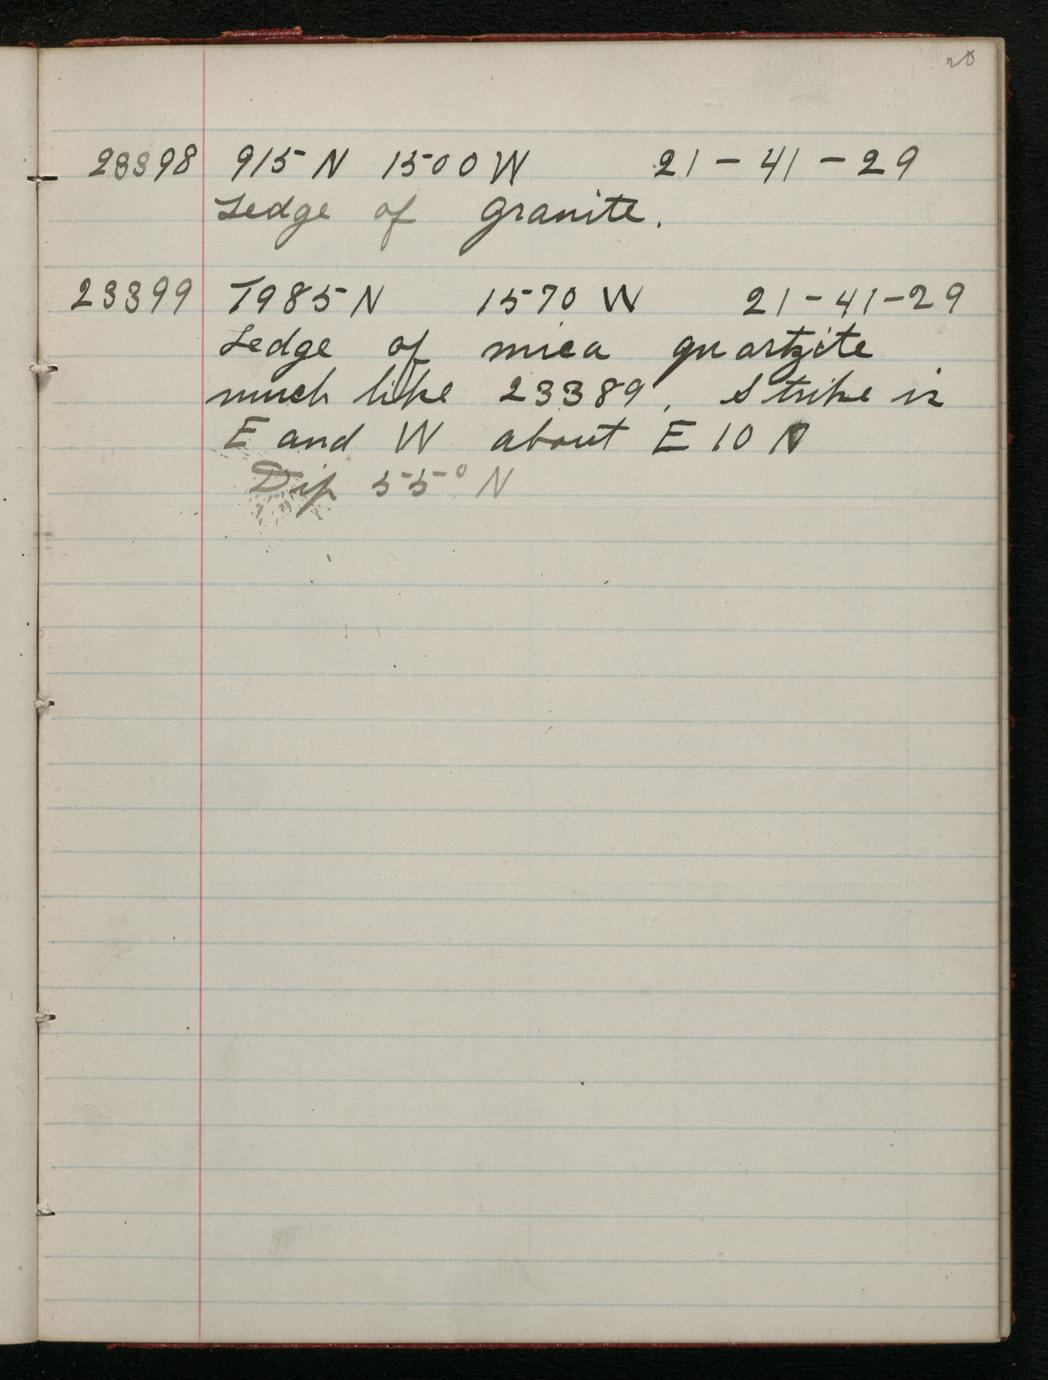 28
23398 915 N 1500 W 21 - 41 - 29
Ledge of granite.
23399 1985 N 1570 W 21 - 41 - 29
Ledge of mica quartzite
much like 23389. Strike is
E and W about E 10 N
Dip 55° N